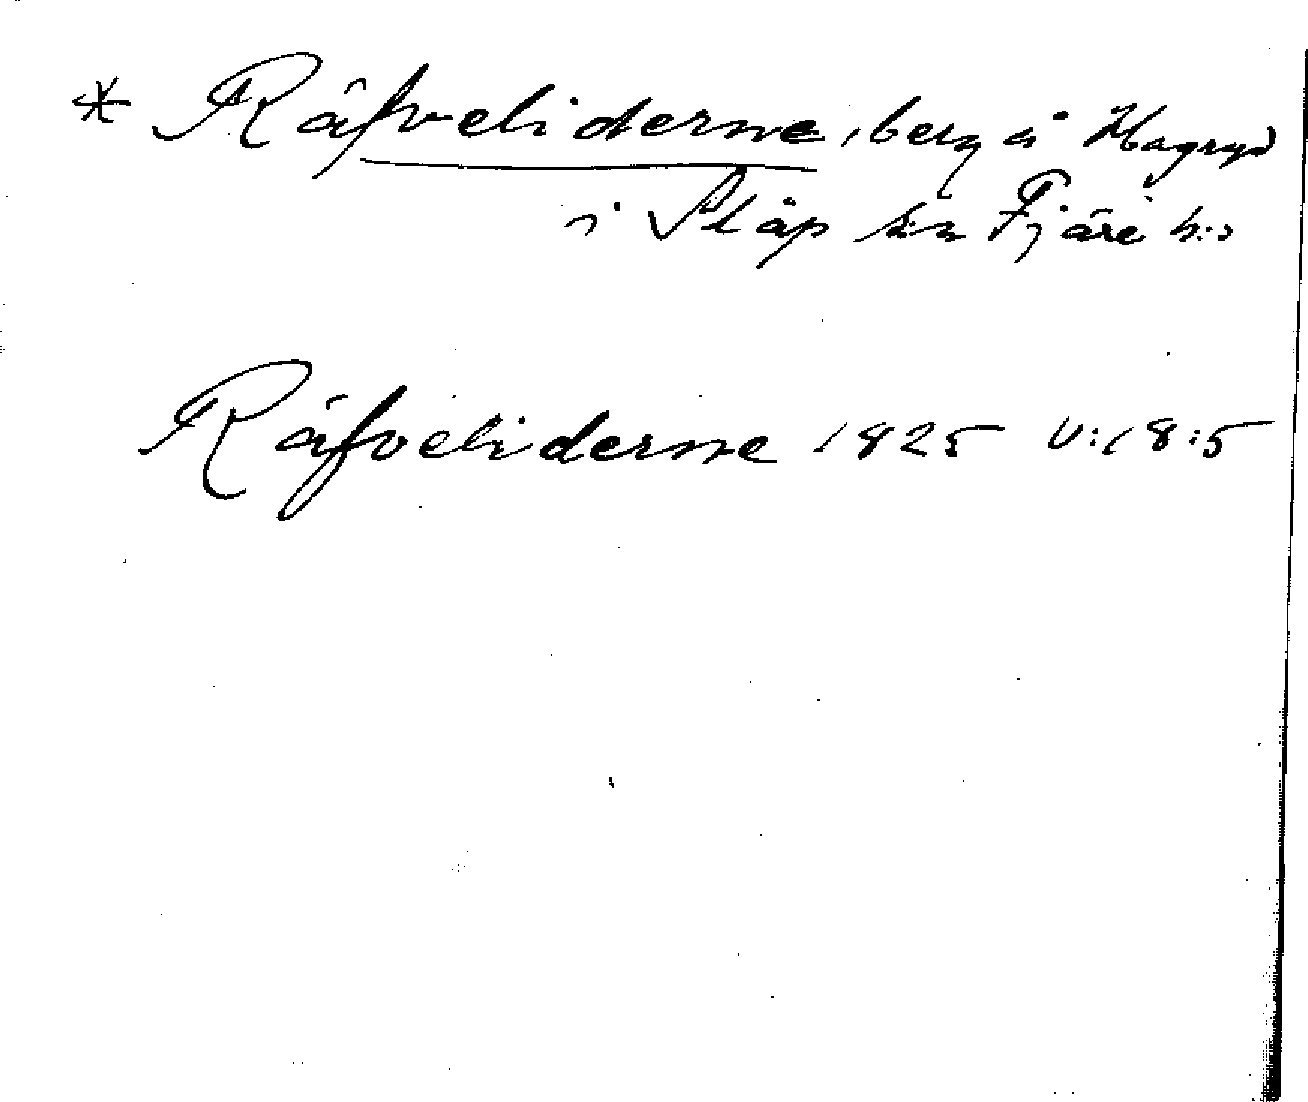 * Räfveliderne, berg å Hagryd
i Släp sn Fjäre hd
Räfveliderne 1825 V:18:5